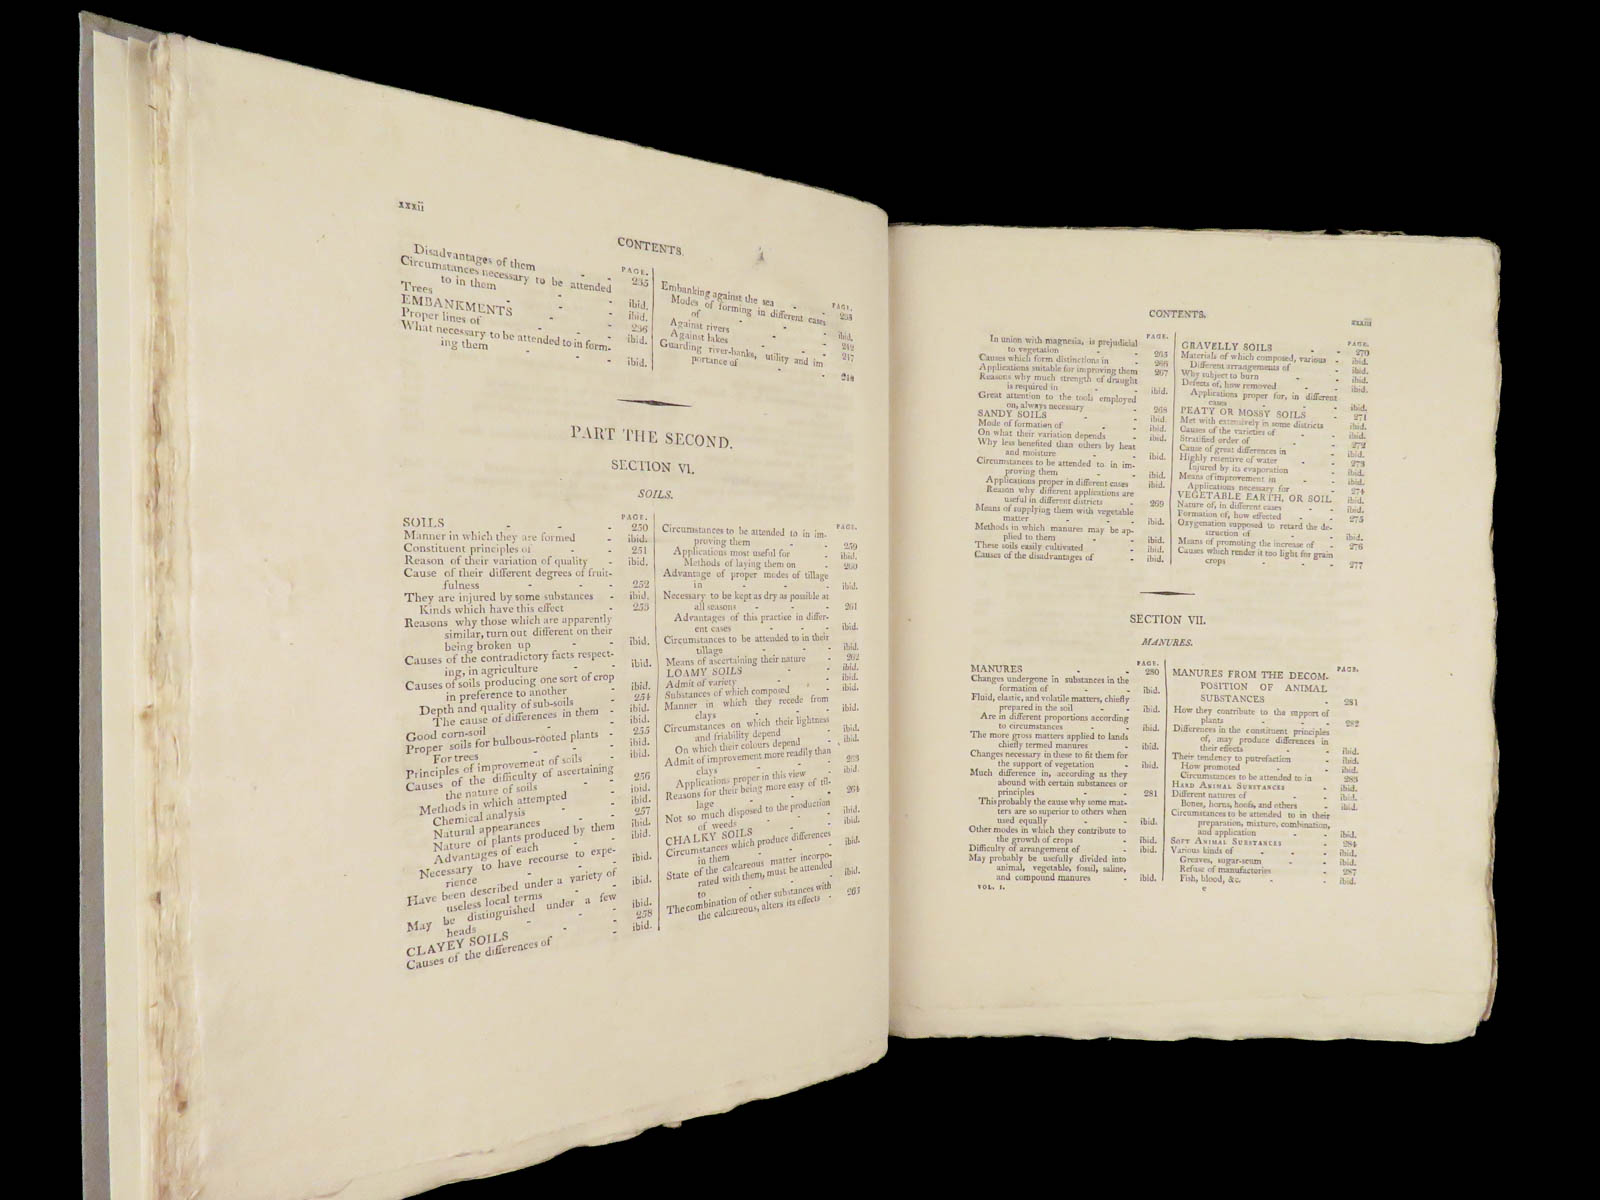 xxxii
CONTENTS.
PAGE.
Disadvantages of them - - 235
Circumstances necessary to be attended
to in them - - ibid.
Trees - - - ibid.
EMBANKMENTS - - 236
Proper lines of - - - ibid.
What necessary to be attended to in form-
ing them - - - ibid.
PAGE.
Embanking against the sea - - 238
Modes of forming in different cases
of - - - ibid.
Against rivers - - - 242
Against lakes - - - 247
Guarding river-banks, utility and im
portance of - - 248
PART THE SECOND.
SECTION VI.
SOILS.
PAGE.
SOILS - - - 250
Manner in which they are formed - ibid.
Constituent principles of - - 251
Reason of their variation of quality - ibid.
Cause of their different degrees of fruit-
fulness - - - 252
They are injured by some substances - ibid.
Kinds which have this effect - 253
Reasons why those which are apparently
similar, turn out different on their
being broken up - - ibid.
Causes of the contradictory facts respect-
ing, in agriculture - - ibid.
Causes of soils producing one sort of crop
in preference to another - ibid.
Depth and quality of sub-soils - 254
The cause of differences in them - ibid.
Good corn-soil - - - ibid.
Proper soils for bulbous-rooted plants - 255
For trees - - - ibid.
Principles of improvement of soils - ibid.
Causes of the difficulty of ascertaining
the nature of soils - - 256
Methods in which attempted - ibid.
Chemical analysis - - ibid.
Natural appearances - - 257
Nature of plants produced by them ibid.
Advantages of each - - ibid.
Necessary to have recourse to expe-
rience - - - ibid.
Have been described under a variety of
useless local terms - - ibid.
May be distinguished under a few
heads - - - ibid.
CLAYEY SOILS - - 258
Causes of the differences of - ibid.
PAGE.
Circumstances to be attended to in im-
proving them - - 259
Applications most useful for - ibid.
Methods of laying them on - 260
Advantage of proper modes of tillage
in - - - ibid.
Necessary to be kept as dry as possible at
all seasons - - - 261
Advantages of this practice in differ-
ent cases - - - ibid.
Circumstances to be attended to in their
tillage - - - ibid.
Means of ascertaining their nature - 262
LOAMY SOILS - - ibid.
Admit of variety - - ibid.
Substances of which composed - ibid.
Manner in which they recede from
clays - - - ibid.
Circumstances on which their lightness
and friability depend - - ibid.
On which their colours depend - ibid.
Admit of improvement more readily than
clays - - - 263
Applications proper in this view - ibid.
Reasons for their being more easy of til-
lage - - - 264
Not so much disposed to the production
of weeds - - - ibid.
CHALKY SOILS - - ibid.
Circumstances which produce differences
in them - - - ibid.
State of the calcareous matter incorpo-
rated with them, must be attended
to - - - ibid.
The combination of other substances with
the calcareous, alters its effects - 265
CONTENTS.
xxxiii
PAGE.
In union with magnesia, is prejudicial
to vegetation - - 265
Causes which form distinctions in - 266
Applications suitable for improving them 267
Reasons why much strength of draught
is required in - - ibid.
Great attention to the tools employed
on, always necessary - 268
SANDY SOILS - - ibid.
Mode of formation of - - ibid.
On what their variation depends - ibid.
Why less benefited than others by heat
and moisture - - ibid.
Circumstances to be attended to in im-
proving them - - ibid.
Applications proper in different cases ibid.
Reason why different applications are
useful in different districts - 269
Means of supplying them with vegetable
matter - - - ibid.
Methods in which manures may be ap-
plied to them - - ibid.
These soils easily cultivated - ibid.
Causes of the disadvantages of - ibid.
PAGE.
GRAVELLY SOILS - - 270
Materials of which composed, various - ibid.
Different arrangements of - ibid.
Why subject to burn - - ibid.
Defects of, how removed - - ibid.
Applications proper for, in different
cases - - - ibid.
PEATY OR MOSSY SOILS - 271
Met with extensively in some districts ibid.
Causes of the varieties of - - ibid.
Stratified order of - - 272
Cause of great differences in - ibid.
Highly retentive of water - - 273
Injured by its evaporation - ibid.
Means of improvement in - - ibid.
Applications necessary for - 274
VEGETABLE EARTH, OR SOIL ibid.
Nature of, in different cases - - ibid.
Formation of, how effected - - 275
Oxygenation supposed to retard the de-
struction of - - ibid.
Means of promoting the increase of - 276
Causes which render it too light for grain
crops - - - 277
SECTION VII.
MANURES.
PAGE.
MANURES - - 280
Changes undergone in substances in the
formation of - - ibid.
Fluid, elastic, and volatile matters, chiefly
prepared in the soil - - ibid.
Are in different proportions according
to circumstances - - ibid.
The more gross matters applied to lands
chiefly termed manures - ibid.
Changes necessary in these to fit them for
the support of vegetation - ibid.
Much difference in, according as they
abound with certain substances or
principles - - 281
This probably the cause why some mat-
ters are so superior to others when
used equally - - ibid.
Other modes in which they contribute to
the growth of crops - ibid.
Difficulty of arrangement of - ibid.
May probably be usefully divided into
animal, vegetable, fossil, saline,
and compound manures - ibid.
VOL. I.
PAGE.
MANURES FROM THE DECOM-
POSITION OF ANIMAL
SUBSTANCES - - 281
How they contribute to the support of
plants - - - 282
Differences in the constituent principles
of, may produce differences in
their effects - - ibid.
Their tendency to putrefaction - ibid.
How promoted - - ibid.
Circumstances to be attended to in 283
HARD ANIMAL SUBSTANCES - ibid.
Different natures of - - ibid.
Bones, horns, hoofs, and others - ibid.
Circumstances to be attended to in their
preparation, mixture, combination,
and application - - ibid.
SOFT ANIMAL SUBSTANCES - 284
Various kinds of - - - ibid.
Greaves, sugar-scum - - ibid.
Refuse of manufactories - 287
Fish, blood, &c. - - ibid.
e